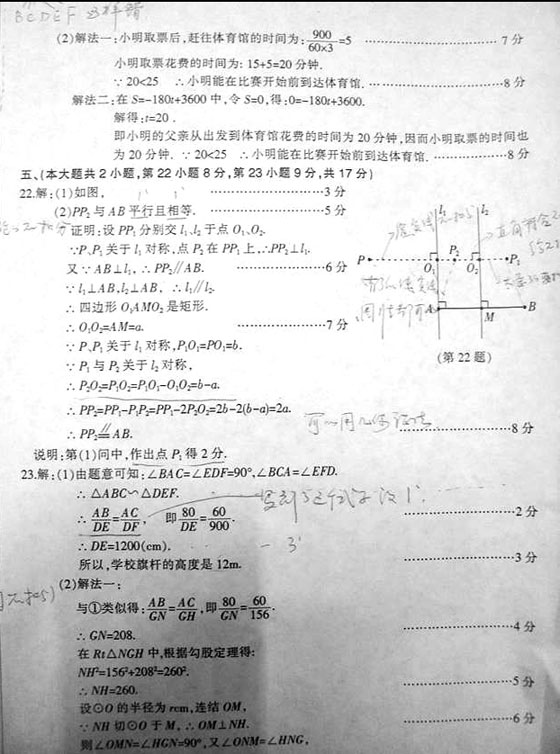 BCDEF
(2)解法一:小明取票后,赶往体育馆的时间为:900/(60×3)=5 …… 7分
小明取票花费的时间为:15+5=20分钟.
∵20<25 ∴小明能在比赛开始前到达体育馆. …… 8分
解法二:在S=-180t+3600中,令S=0,得:0=-180t+3600.
解得:t=20.
即小明的父亲从出发到体育馆花费的时间为20分钟,因而小明取票的时间也
为20分钟. ∵20<25 ∴小明能在比赛开始前到达体育馆. …… 8分
五、(本大题共2小题,第22小题8分,第23小题9分,共17分)
22.解:(1)如图, …… 3分
(2)PP₂与AB平行且相等. …… 5分
证明:设PP₁分别交l₁、l₂于点O₁、O₂.
∵P、P₁关于l₁对称,点P₂在PP₁上,∴PP₂⊥l₁.
又∵AB⊥l₁, ∴PP₂∥AB. …… 6分
∵l₁⊥AB,l₂⊥AB, ∴l₁∥l₂.
∴四边形O₁AMO₂是矩形.
∴O₁O₂=AM=a. …… 7分
∵P、P₁关于l₁对称,P₁O₁=PO₁=b.
∵P₁与P₂关于l₂对称,
∴P₂O₂=P₁O₂=P₁O₁-O₁O₂=b-a.
∴PP₂=PP₁-P₁P₂=PP₁-2P₂O₂=2b-2(b-a)=2a.
∴PP₂∥=AB. …… 8分
l₁ l₂
P O₁ P₂ O₂ P₁
A M B
(第22题)
说明:第(1)问中,作出点P₁得2分.
23.解:(1)由题意可知:∠BAC=∠EDF=90°,∠BCA=∠EFD.
∴△ABC∽△DEF.
∴AB/DE=AC/DF, 即80/DE=60/900. …… 2分
∴DE=1200(cm).
所以,学校旗杆的高度是12m. …… 3分
(2)解法一:
与①类似得:AB/GN=AC/GH,即80/GN=60/156.
∴GN=208. …… 4分
在Rt△NGH中,根据勾股定理得:
NH²=156²+208²=260².
∴NH=260. …… 5分
设⊙O的半径为rcm,连结OM,
∵NH切⊙O于M,∴OM⊥NH. …… 6分
则∠OMN=∠HGN=90°,又∠ONM=∠HNG,